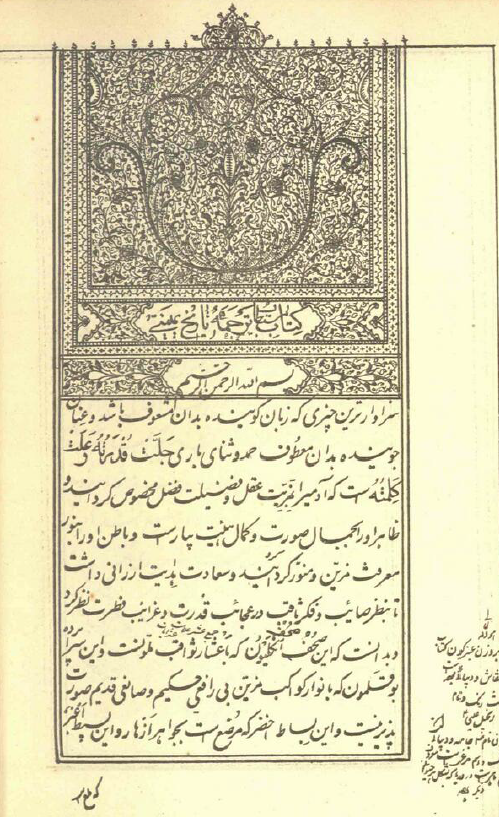 کتاب ترجمهٔ تاریخ یمینی
بسم الله الرحمن الرحیم
سزاوارترین چیزی که زبان گوینده بدان مشعوف باشد و عنان
جوینده بدان معطوف حمد و ثنای باری جلت قدرته و علت
کلمته است که آدمی را بمزیت عقل و فضیلت فضل مخصوص گردانید و
ظاهر او را بجمال صورت و کمال هیئت بیاراست و باطن او را بنور
معرفت مزین و منور گردانید و سعادت هدایت ارزانی داشت
تا بنظر صائب و فکر ثاقب در عجائب قدرت و غرائب فطرت نظر کرد
و بدانست که این صحف انگلیون که باعشار ثواقب ملونست و این سرا پرده
بوقلمون که بانوار کواکب مزین بی رافعی حکیم و صانعی قدیم صورت
پذیر نیست و این بساط اخضر که مرصع است بجواهر ازهار و این بسیط اغبر